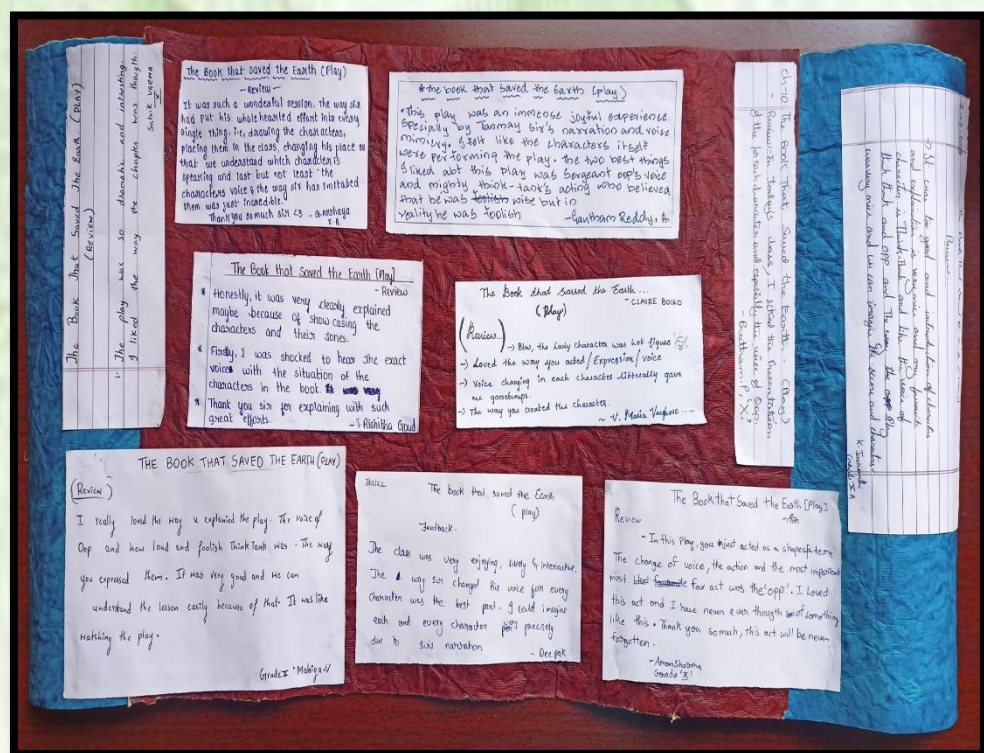 The Book That Saved The Earth (PLAY)
(Review)
The play was so dramatic and intresting.
I liked the way the chapter was though.
Sahik varma
X
The Book that saved the Earth (Play)
- Review -
It was such a wonderful session. the way sir
had put his whole hearted effort into every
single thing. i.e, drawing the characters,
placing them in the class, changing his place so
that we understand which character is
speaking and last but not least the
characters voice & the way sir has imitated
them was just incredible.
Thank you so much sir <3 - G. Akshaya
X-A
*the book that saved the Earth (play)
• This play was an immense joyful experience
specially by Tanmay sir's narration and voice
mimicry. I felt like the characters itself
were performing the play. The two best things
I liked abt this play was Sergeant oop's voice
and mighty think-tank's acting who believed
that he was foolish wise but in
reality he was foolish
-Gautham Reddy. A
ch-10 The Book That Saved the Earth - (Play)
Review:- In today's class, I liked the Presentation
of the for each character and especially the voice of Oop.
- Preetham. P, 'X'
Review
→ It was too good and introduction of character
and explanation is very nice and my favourite
character is Think-Tank and like the voice of
think think and opp and The scean the opp Play
wearing mice and we can imagin the scene and characters.
Grade X A
The Book that saved the Earth [Play]
- Review
* Honestly, it was very clearly explained
maybe because of show casing the
characters and their tones.
* Firstly, I was shocked to hear the exact
voice with the situation of the
characters in the book. It was very
* Thank you sir for explaining with such
great efforts.
- T. Rishitha Goud
The Book that saved the Earth...
- CLAIRE BOIKO
(Play)
(Review...)
→ Btw, the Lady character was hot figure
→ Loved the way you acted/Expression/voice
→ Voice changing in each character litterally gave
me goosebumps.
→ The way you created the character.
~ V. Maria Varghese ....
THE BOOK THAT SAVED THE EARTH (PLAY)
(Review)
I really loved the way u explained the play. The voice of
Oop and how loud and foolish Think Tank was. The way
you expressed them. It was very good and we can
understand the lesson easily because of that. It was like
watching the play.
Grade X 'Mahiga.V
The book that saved the Earth
(play)
Feedback.
The class was very enjoying, lively & interactive.
The way sir changed his voice for every
character was the best part. I could imagine
each and every character precisely
due to sirs narration
- Deepak
The Book that Saved the Earth [Play]
Review
- In this Play, you just acted as a shapeshifters
The change of voice, the action and the most important
most liked far act was the 'opp'. I Loved
this act and I have never ever though so of something
like this. Thank you so much, this act will be never
forgotten.
- Aman Sharma
Grade 'X'